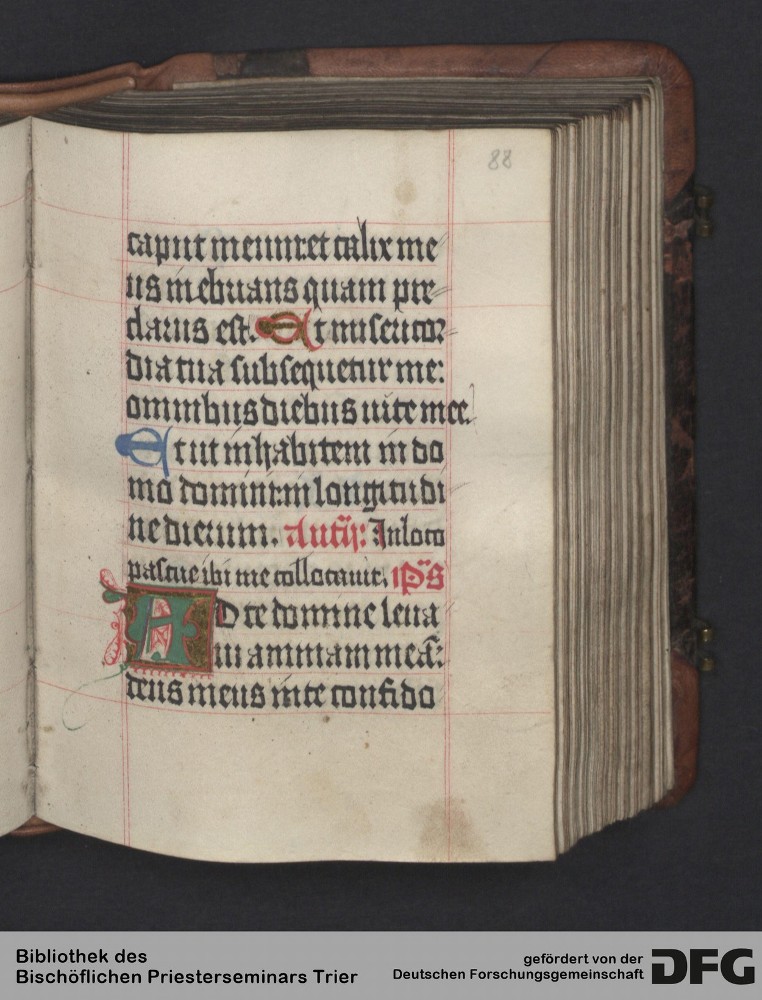 88
caput meum: et calix me
us inebrians quam pre
clarus est. Et misericor
dia tua subsequetur me:
omnibus diebus uite mee.
Et ut inhabitem in do
mo domini: in longitudi
ne dierum. Antiꝰ: In loco
pascue ibi me collocauit. Ps̄
AD te domine leua
ui animam meā:
deus meus in te confido
Bibliothek des
Bischöflichen Priesterseminars Trier
gefördert von der
Deutschen Forschungsgemeinschaft
DFG